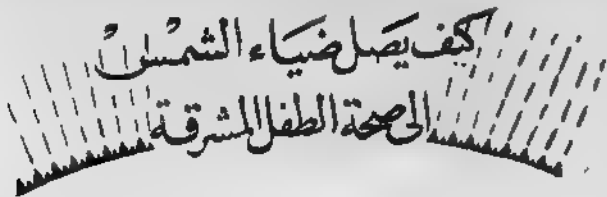 كيف يَصَل ضيَاء الشمْسْ
الى صحة الطفل المشرقة